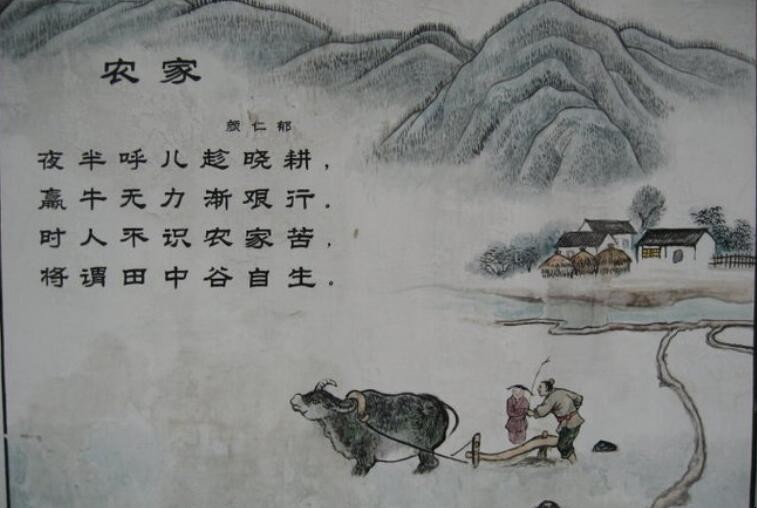 农家
颜仁郁
夜半呼儿趁晓耕，
羸牛无力渐艰行。
时人不识农家苦，
将谓田中谷自生。